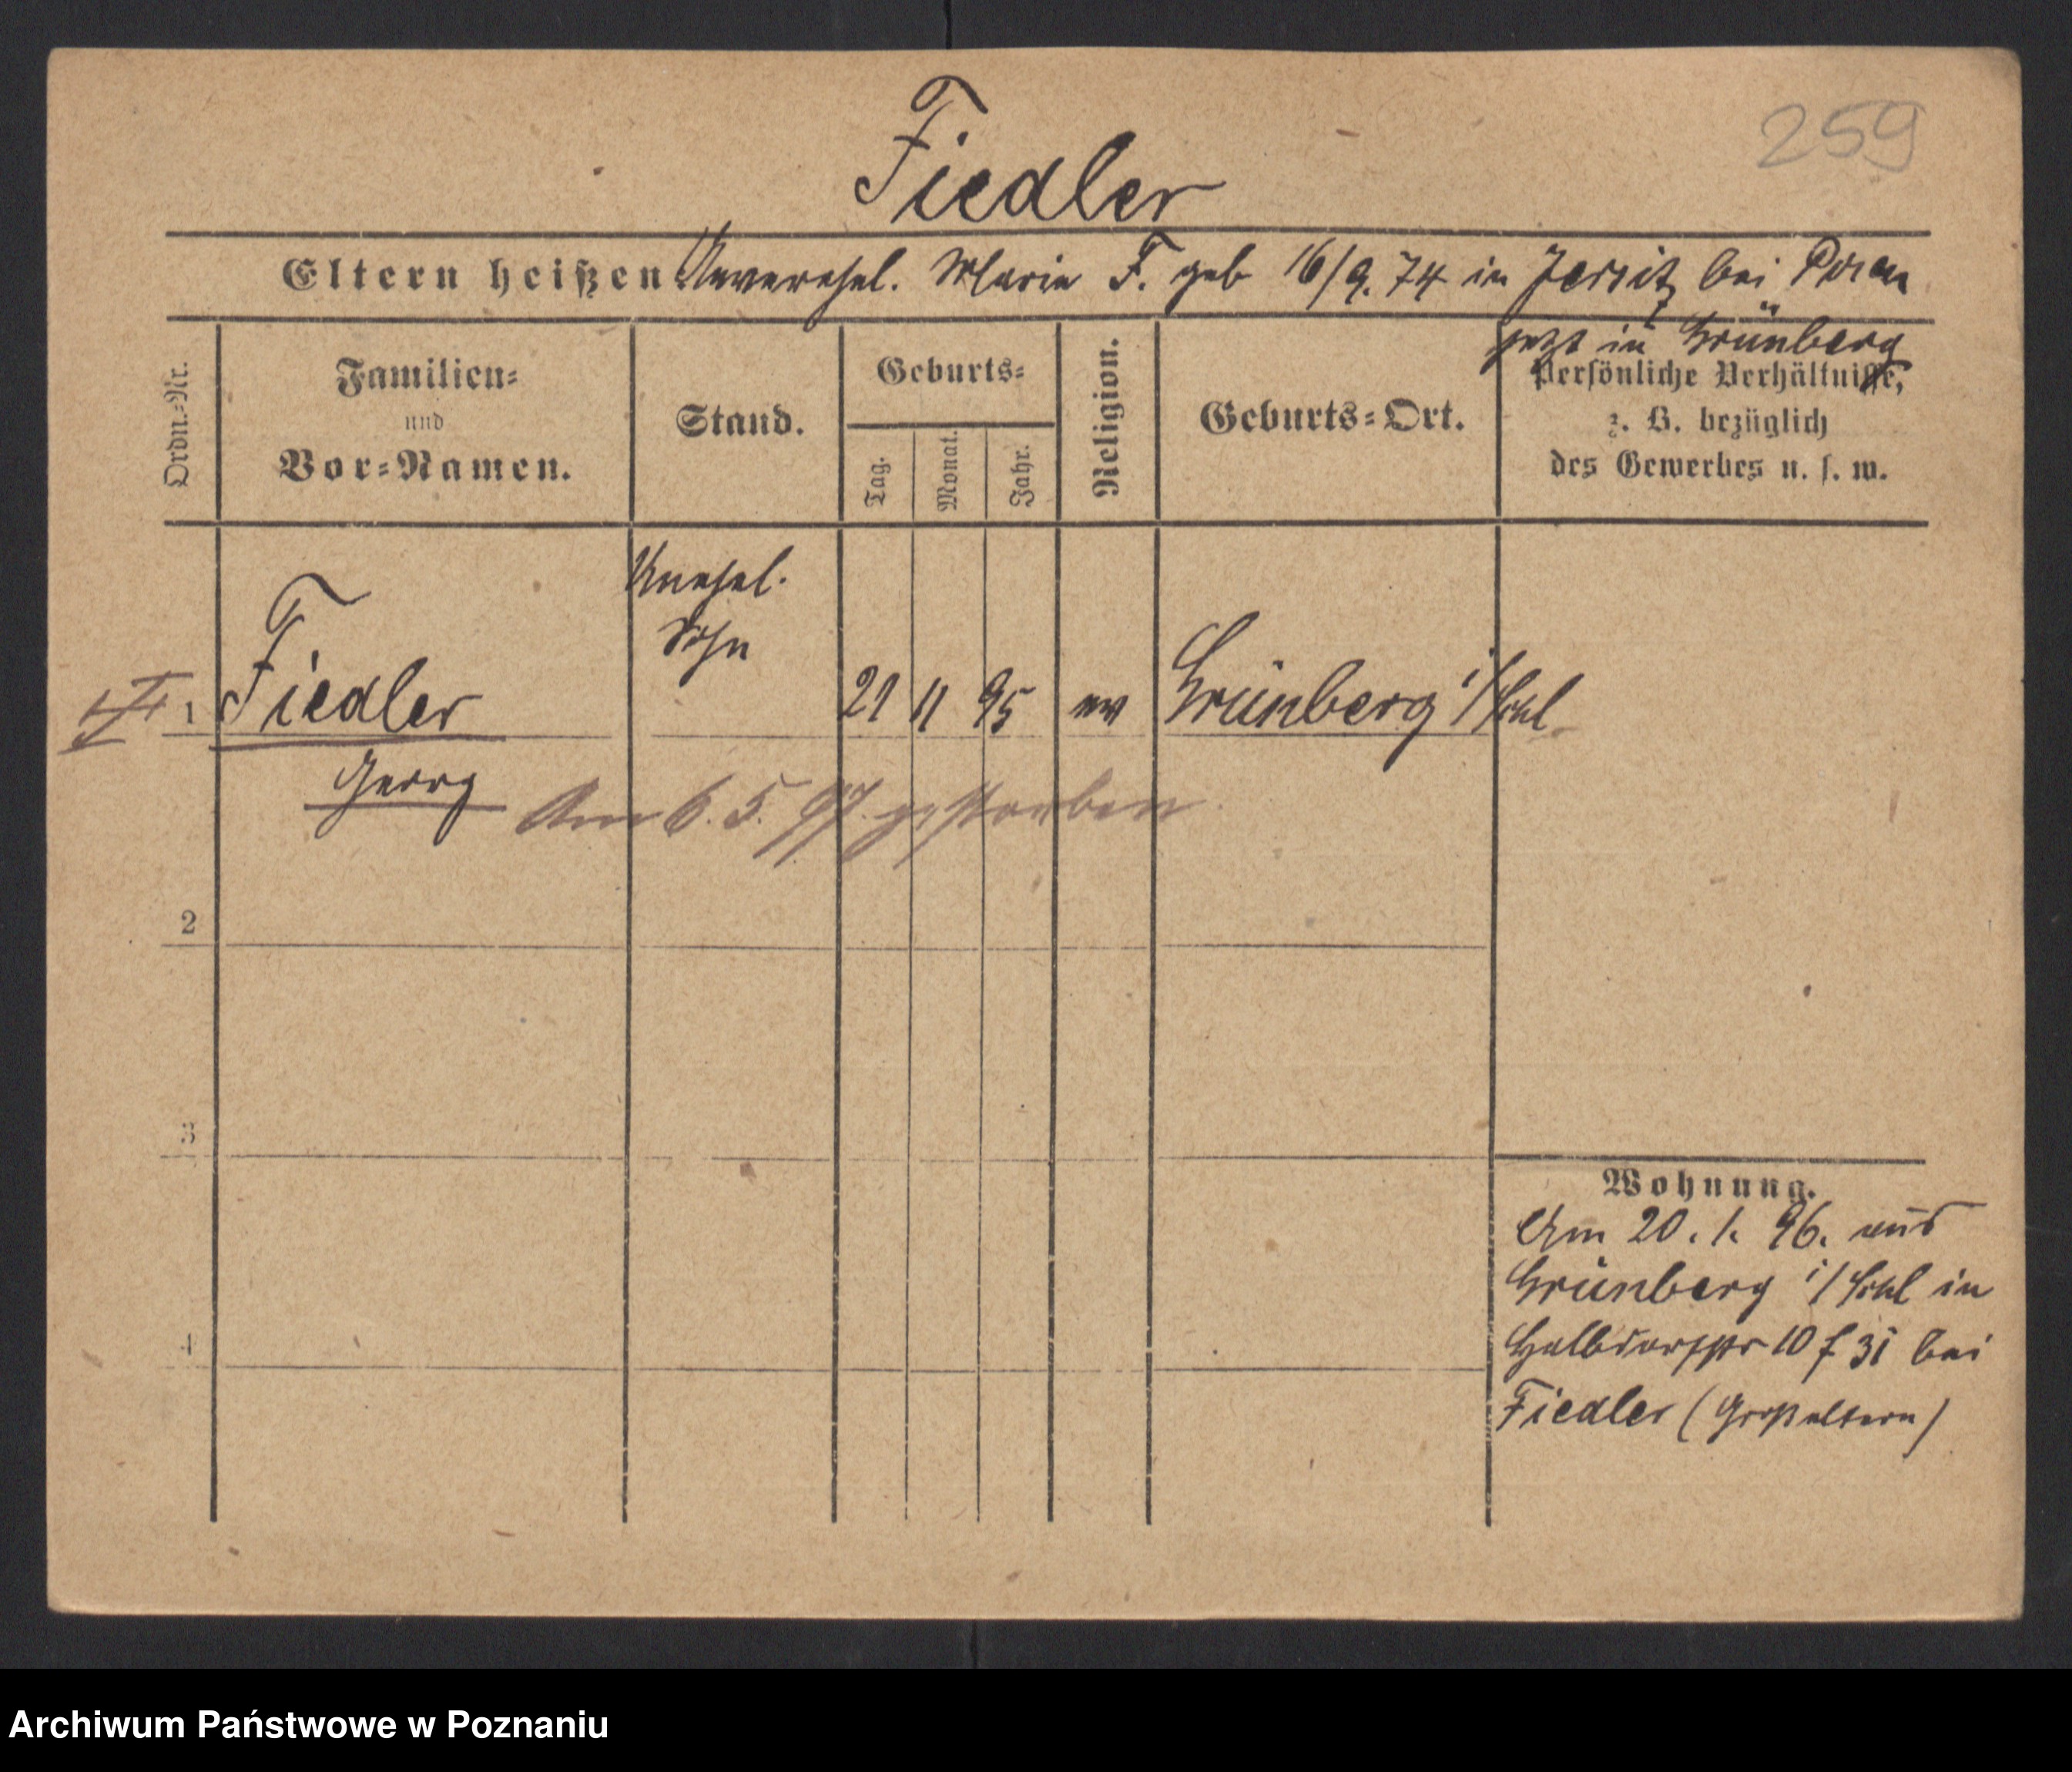 259
Fiedler
Eltern heißen Unverehel. Marie F. geb 16/9.74 in Jersitz bei Posen
jetzt in Grünberg
Ordn.-Nr.
Familien-
und
Vor-Namen.
Stand.
Geburts-
Tag.
Monat.
Jahr.
Religion.
Geburts-Ort.
Persönliche Verhältnisse,
z. B. bezüglich
des Gewerbes u. s. w.
Unehel.
Sohn
1 Fiedler 21 11 95 ev Grünberg i/Schl
Georg
Am 6. 5. 97. gestorben
2
3
4
Wohnung.
Am 20. 1. 96. aus
Grünberg i/Schl in
Halbdorfstr 10 f 31 bei
Fiedler (Großeltern)
Archiwum Państwowe w Poznaniu